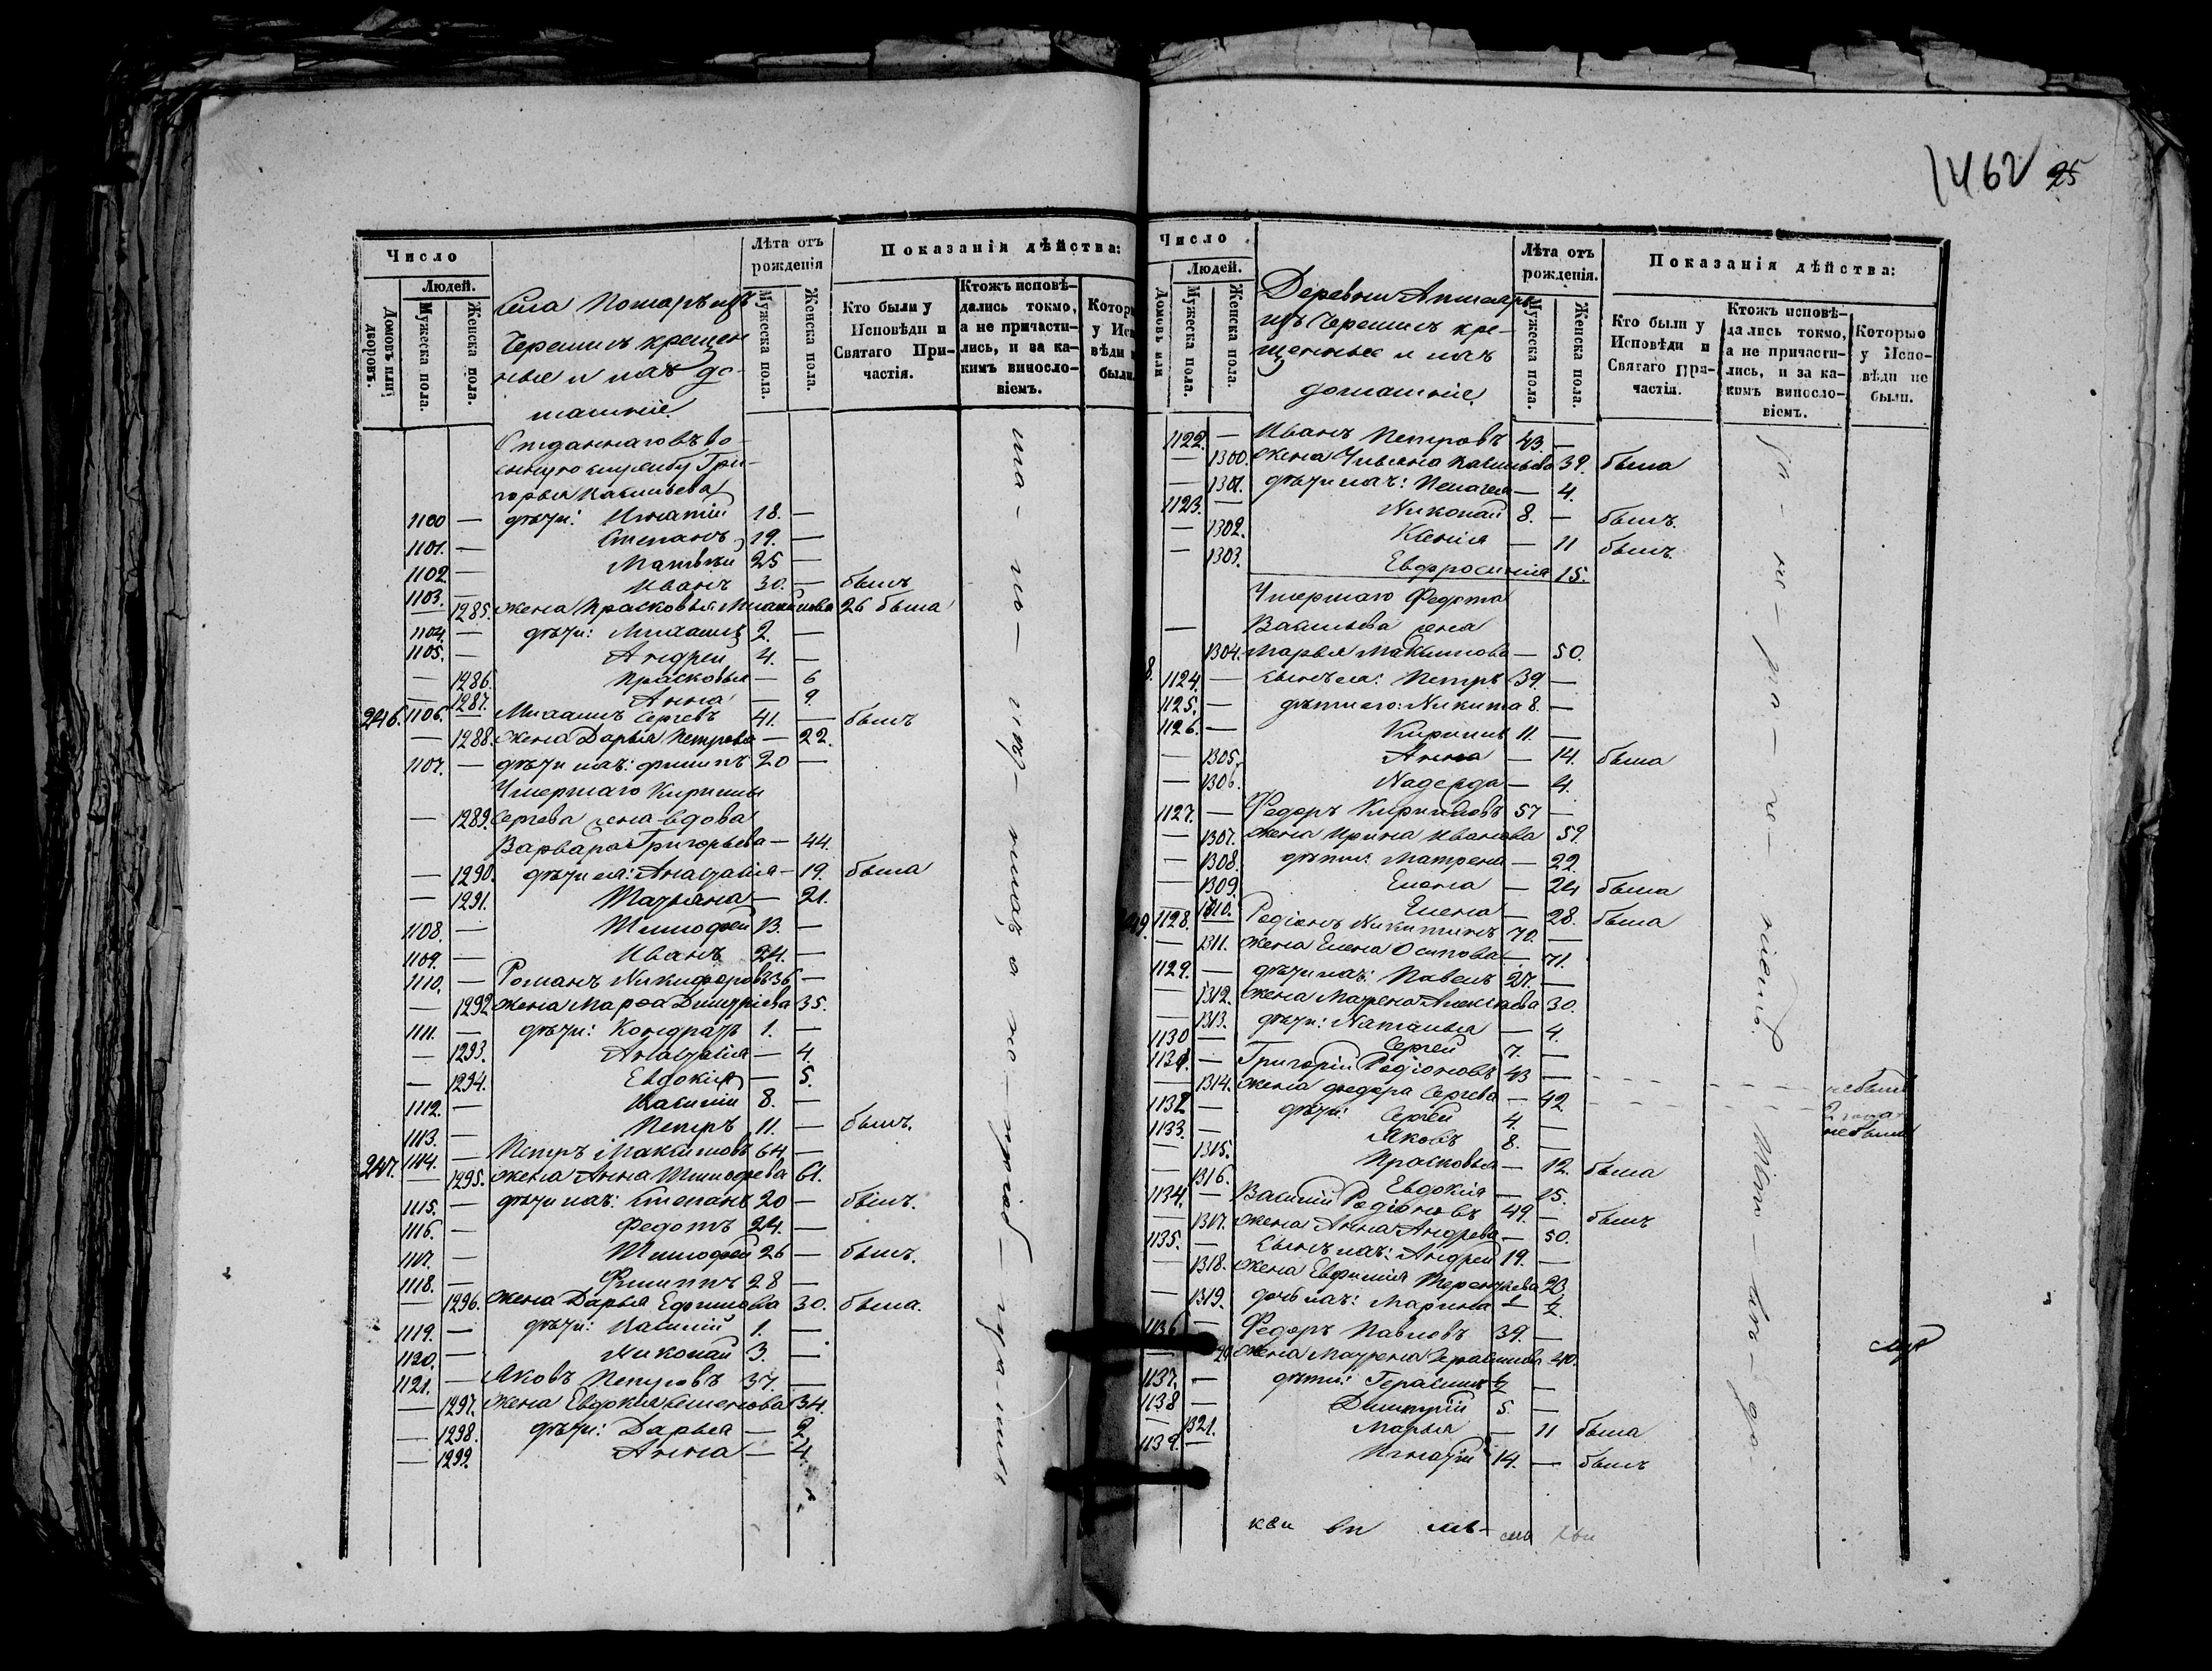 1462 25
Число
Людей.
Домовъ или дворовъ.
Мужеска пола.
Женска пола.
Села
Черемисъ крещен
ные и ихъ до-
машніе.
Лѣта отъ рожденія
Мужеска пола.
Женска пола.
Показанія дѣйства:
Кто были у Исповѣди и Святаго При-частія.
Ктожъ исповѣ-дались токмо, а не причасти-лись, и за ка-кимъ винос­ло-віемъ.
Отданнаго въ во-
енную службу Гри-
горья Васильева
1100 — дѣти: Игнатій 18. —
1101. — Степанъ 19. —
1102 — Матвѣй 25 —
1103. — Иванъ 30. — былъ
— 1285. жена Прасковья 26 была
1104. — дѣти: Михаилъ 2. —
1105. — Андрей 4. —
— 1286. Прасковья — 6
— 1287. Анна — 9.
246. 1106. — Михаилъ Сергѣевъ 41. — былъ
— 1288. жена Дарья Петрова — 22.
1107. — дѣти ихъ: Филипъ 20 —
Умершаго Кирилы
— 1289. Сергѣева жена-вдова
Варвара Григорьева — 44.
— 1290. дѣти ея: Анастасія — 19. была
— 1291. Татьяна — 21.
1108. — Тимофей 13. —
1109. — Иванъ 24. —
1110. — Романъ Никифоровъ 36 —
— 1292 жена Марфа Димитріева 35.
1111. — дѣти: Кондратъ 1. —
— 1293. Анастасія — 4.
— 1294. Евдокія — 5.
1112. — Василій 8. —
1113. — Петръ 11. — былъ.
247. 1114. — Петръ Максимовъ 64. —
— 1295. жена Анна Тимофеева 61.
1115. — дѣти ихъ: Степанъ 20 — былъ.
1116. — Федотъ 24. —
1117. — Тимофей 26 — былъ.
1118. — Филиппъ 28 —
— 1296. жена Дарья Ефимова 30. была.
1119. — дѣти: Василій 1. —
1120. — Николай 3. —
1121. — Яковъ Петровъ 37. —
— 1297. жена Евдокія Семенова 34.
— 1298. дѣти: Дарья — 2.
— 1299. Анна — 4.
Число
Людей.
Домовъ или
Мужеска пола.
Женска пола.
Деревни
Черемисъ кре-
щенные и ихъ
домашніе.
Лѣта отъ рожденія.
Мужеска пола.
Женска пола.
Показанія дѣйства:
Кто были у Исповѣди и Святаго При-частія.
Ктожъ исповѣ-дались токмо, а не причасти-лись, и за ка-кимъ винос­ло-віемъ.
Которые у Испо-вѣди не были.
1122. — Иванъ Петровъ 43. —
— 1300. жена Ульяна Васильева 39. была
— 1301. дѣти ихъ: Пелагея — 4.
1123. — Николай 8. — былъ.
— 1302. Ксенія — 11 былъ.
— 1303. Евфросинія 15.
Умершаго Федота
— Васильева жена
1304. Марья Максимова — 50.
8. 1124. — сынъ ея: Петръ 39. —
1125. — дѣти его: Никита 8. —
1126. — Кирилъ 11. —
— 1305. Анна — 14. была
— 1306. Надежда — 4.
1127. — Федоръ Кириловъ 57 —
— 1307. жена Ирина Иванова 59.
— 1308. дѣти: Матрена — 22.
— 1309. Елена — 24 была
— 1310. Елена — 28. была
49. 1128. — Родіонъ Никитинъ 70. —
— 1311. жена Елена Осипова — 71.
1129. — дѣти ихъ: Павелъ 27. —
— 1312. жена Матрена Алексѣева 30.
— 1313. дѣти: Наталья — 4.
1130 — Сергей 7. —
1131. — Григорій Родіоновъ 43 —
— 1314. жена Федора Сергѣева — 42
1132 — дѣти: Сергей 4. —
1133. — Яковъ 8. —
— 1315. Прасковья — 12. была
— 1316. Евдокія — 15.
1134. — Василій Родіоновъ 49. — былъ
— 1317. жена Анна Андреева — 50.
1135. — сынъ ихъ: Андрей 19. —
— 1318. жена Евфимія Терентьева 23.
— 1319. дочь ихъ: Марина — ½
1136 — Федоръ Павловъ 39. —
— жена Матрена Герасимова 40.
1137. — дѣти: Герасимъ ½ —
1138 — Димитрій 5. —
— 1321. Марья — 11 была
1139. — Игнатій 14. — былъ